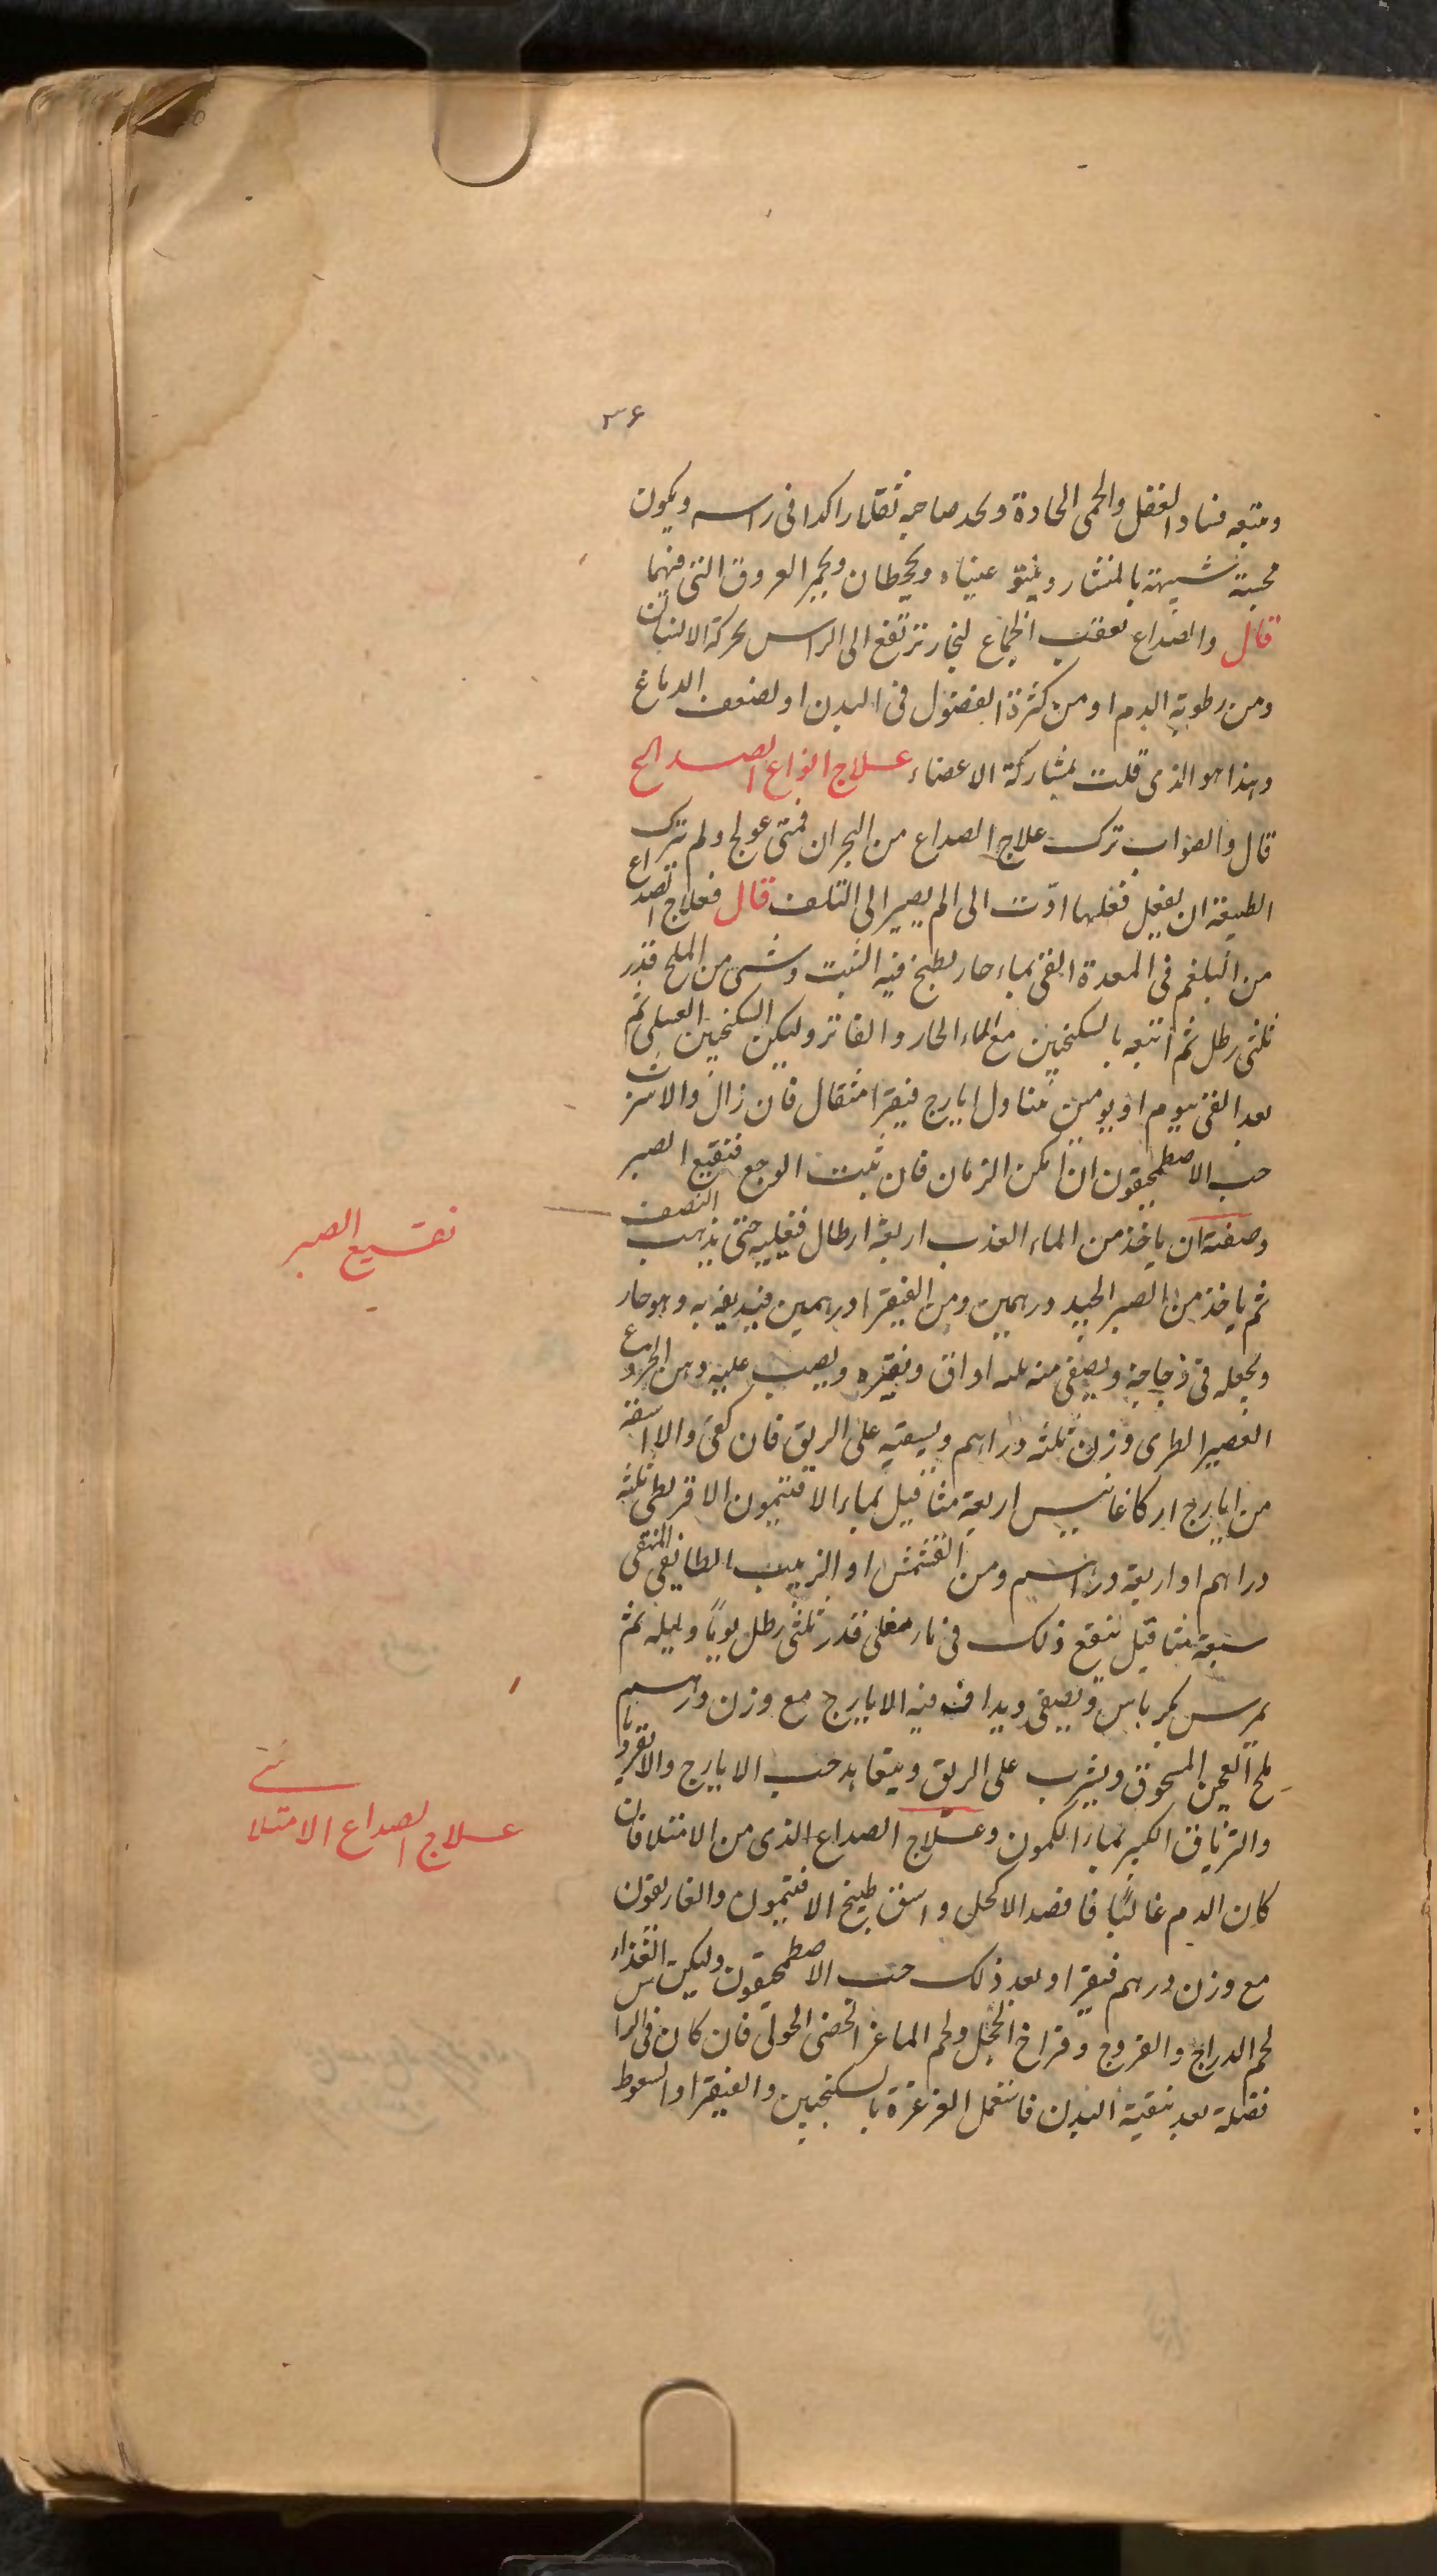 ٣۶
ومتبعه فساد الفضل والحمى الحادة ويجد صاحبه ثقلا راكدا فى راسه ويكون
مجسته شبيهة بالمنشار وينتو عيناه ويجحظان ويحمر العروق التى فيهما
قال والصداع يعقب الجماع لبخار ترتفع الى الراس لحركة الانسان
ومن رطوبة الدم او من كثرة الفضول فى البدن او لضعف الدماغ
وهذا هو الذى قلت بمشاركة الاعضاء علاج انواع الصداع
قال والصواب ترك علاج الصداع من البحران فمتى عولج ولم تترك
الطبيعة ان يفعل فعلها ادّت الى الم يصير الى التلف قال فعلاج الصداع
من البلغم فى المعدة القئ بماء حار يطبخ فيه الشبت وشئ من الملح قدر
ثلثى رطل ثم اتبعه بالسكنجبين مع الماء الحار والفاتر وليكن السكنجبين العسلى ثم
بعد القئ بيوم او يومين تناول ايارج فيقرا مثقال فان زال والا شرب
حب الاصطمحيقون ان امكن الزمان فان ثبت الوجع فنقيع الصبر
وصفته ان ياخذ من الماء العذب اربعة ارطال فيغليه حتى يذهب النصف
ثم ياخذ من الصبر الجيد درهمين ومن الفيقرا درهمين فيديفه به وهو حار
ويجعله فى زجاجة ويصفى منه ثلثه اواق ويفتره ويصب عليه دهن الخروع
العصير الطرى وزن ثلثه دراهم ويسقيه على الريق فان كفى والا اسقه
من ايارج اركاغانيس اربعة مثاقيل بماء الافتيمون الاقريطى ثلثه
دراهم او اربعة دراهم ومن القشمش او الزبيب الطايفى المنقى
سبعة مثاقيل ينقع ذلك فى ماء مغلى قدر ثلثى رطل يوما وليله ثم
يمرس بكرباس ويصفى ويداف فيه الايارج مع وزن درهم
ملح العجين المسحوق ويشرب على الريق ويتعاهد حب الايارج والانقرديا
والترياق الكبير بماء الكمون وعلاج الصداع الذى من الامتلا فان
كان الدم غالبًا فافصد الاكحل واسق طبيخ الافتيمون والغاريقون
مع وزن درهم فيقرا وبعد ذلك حب الاصطمحيقون وليكن الغذاء
لحم الدراج والفروج وفراخ الحجل ولحم الماعز الخصى الحولى فان كان فى الراس
فضلة بعد تنقية البدن فاستعمل الغرغرة بالسكنجبين والفيقرا او السعوط
نقيع الصبر
علاج الصداع الامتلائى